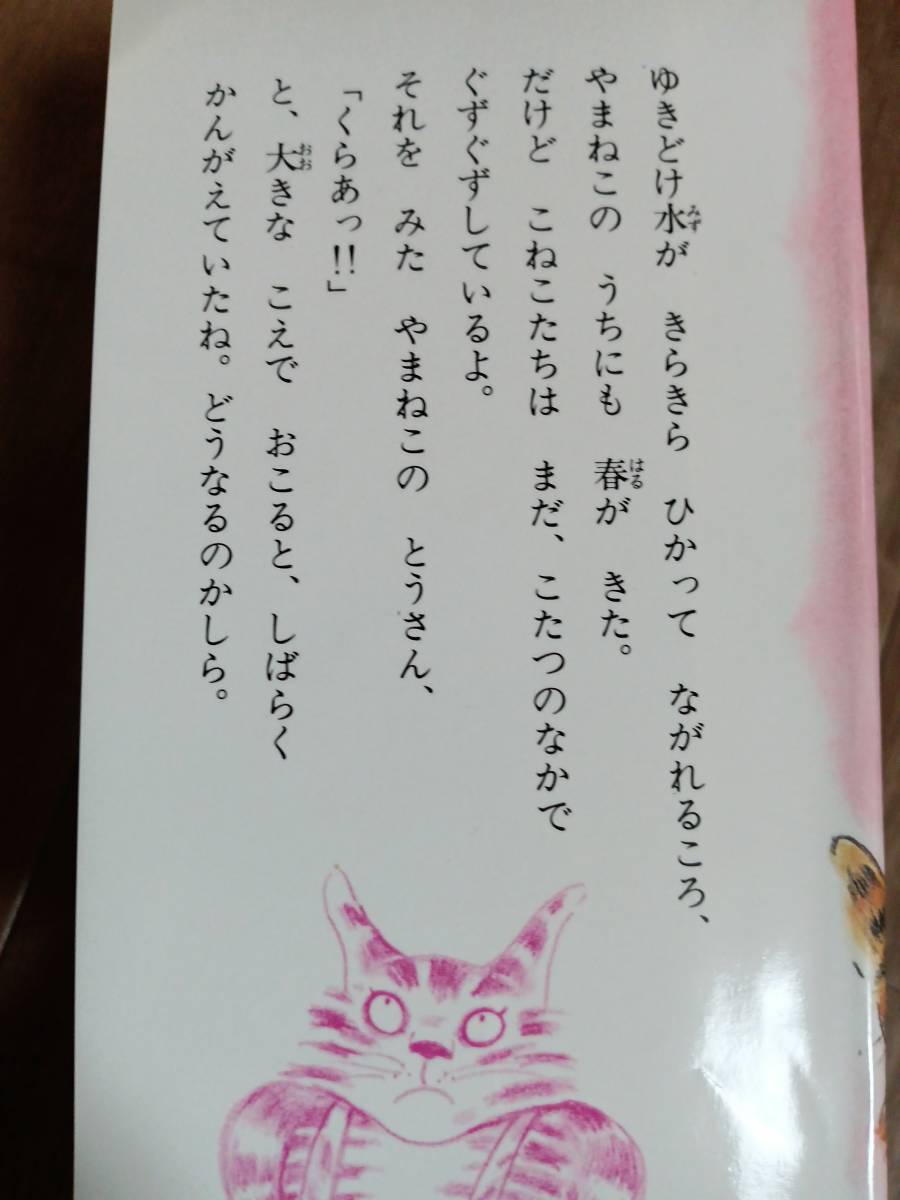 ゆきどけ水が　きらきら　ひかって　ながれるころ、
やまねこの　うちにも　春が　きた。
だけど　こねこたちは　まだ、こたつのなかで
ぐずぐずしているよ。
それを　みた　やまねこの　とうさん、
「くらあっ!!」
と、大きな　こえで　おこると、しばらく
かんがえていたね。どうなるのかしら。